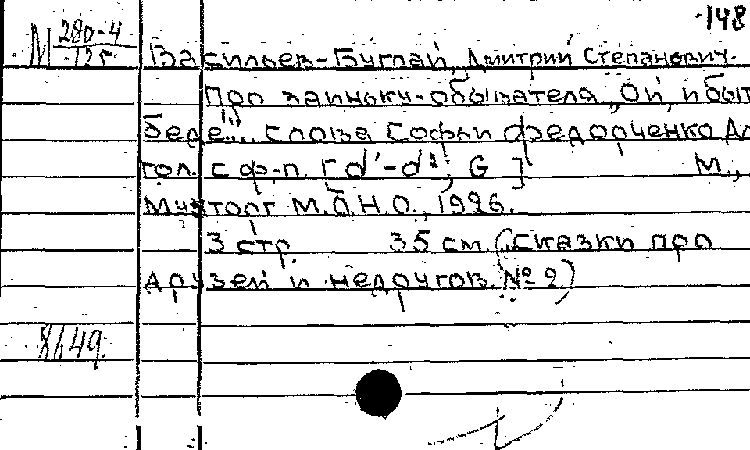 148
М 280-4
125
Васильев-Буглай, Дмитрий Степанович.
Про заиньку-обывателя, „Ой, и быть
беде"... слова Софьи Федорченко Дл
гол. с ф-п. [d'-d²; G] М.,
Музторг М.О.Н.О., 1926.
3 стр. 35 см („Сказки про
друзей и недругов. № 2)
8649.